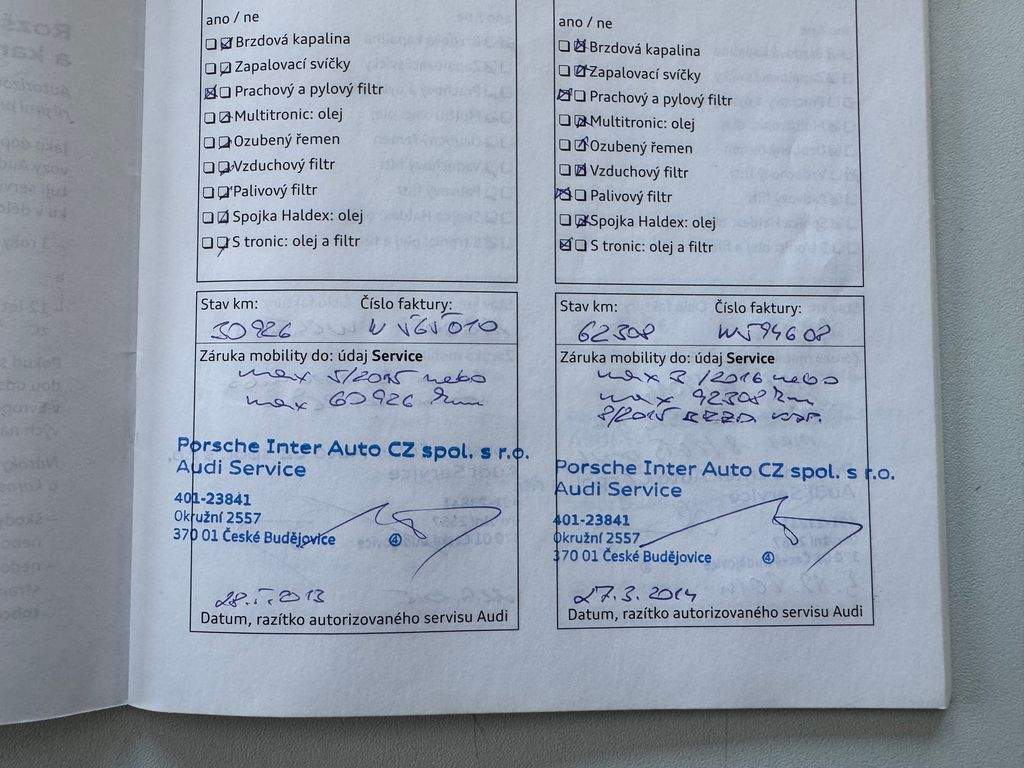 ano / ne
Brzdová kapalina
Zapalovací svíčky
Prachový a pylový filtr
Multitronic: olej
Ozubený řemen
Vzduchový filtr
Palivový filtr
Spojka Haldex: olej
S tronic: olej a filtr
Stav km: Číslo faktury:
30926
Záruka mobility do: údaj Service
max 5/2015 nebo
max 60926 km
Porsche Inter Auto CZ spol. s r.o.
Audi Service
401-23841
Okružní 2557
370 01 České Budějovice 4
28.5.2013
Datum, razítko autorizovaného servisu Audi
ano / ne
Brzdová kapalina
Zapalovací svíčky
Prachový a pylový filtr
Multitronic: olej
Ozubený řemen
Vzduchový filtr
Palivový filtr
Spojka Haldex: olej
S tronic: olej a filtr
Stav km: Číslo faktury:
62308 W594608
Záruka mobility do: údaj Service
max 3/2016 nebo
max 92308 km
8/2015
Porsche Inter Auto CZ spol. s r.o.
Audi Service
401-23841
Okružní 2557
370 01 České Budějovice 4
27.3.2014
Datum, razítko autorizovaného servisu Audi